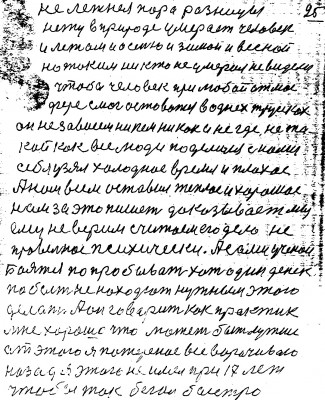 не летняя пора разницы 25
нету в природе умерает человек
и летом и осенью и зимой и весной
но таким никто не умерал не видели
чтоба человек при любой атмос
фере смог остоватся в однех трусиках
он не зависем ни кем никак и не где не та
кой как все люди поделился с нами
себе узял холодное время и плохое
А нам всем оставил теплое и хорошое
нам за это пишет доказывает мы
ему не верим считаем его дело не
правелное психически. А сами ученои
боятся по пробыват хотя один денек
по быт не находят нужным этого
делать. А он говорит как практик
мне хорошо что может быт лутше
от этого я пожденое все ворочиваю
назад Я этого не имел при 17 лет
чтобы так бегал быстро